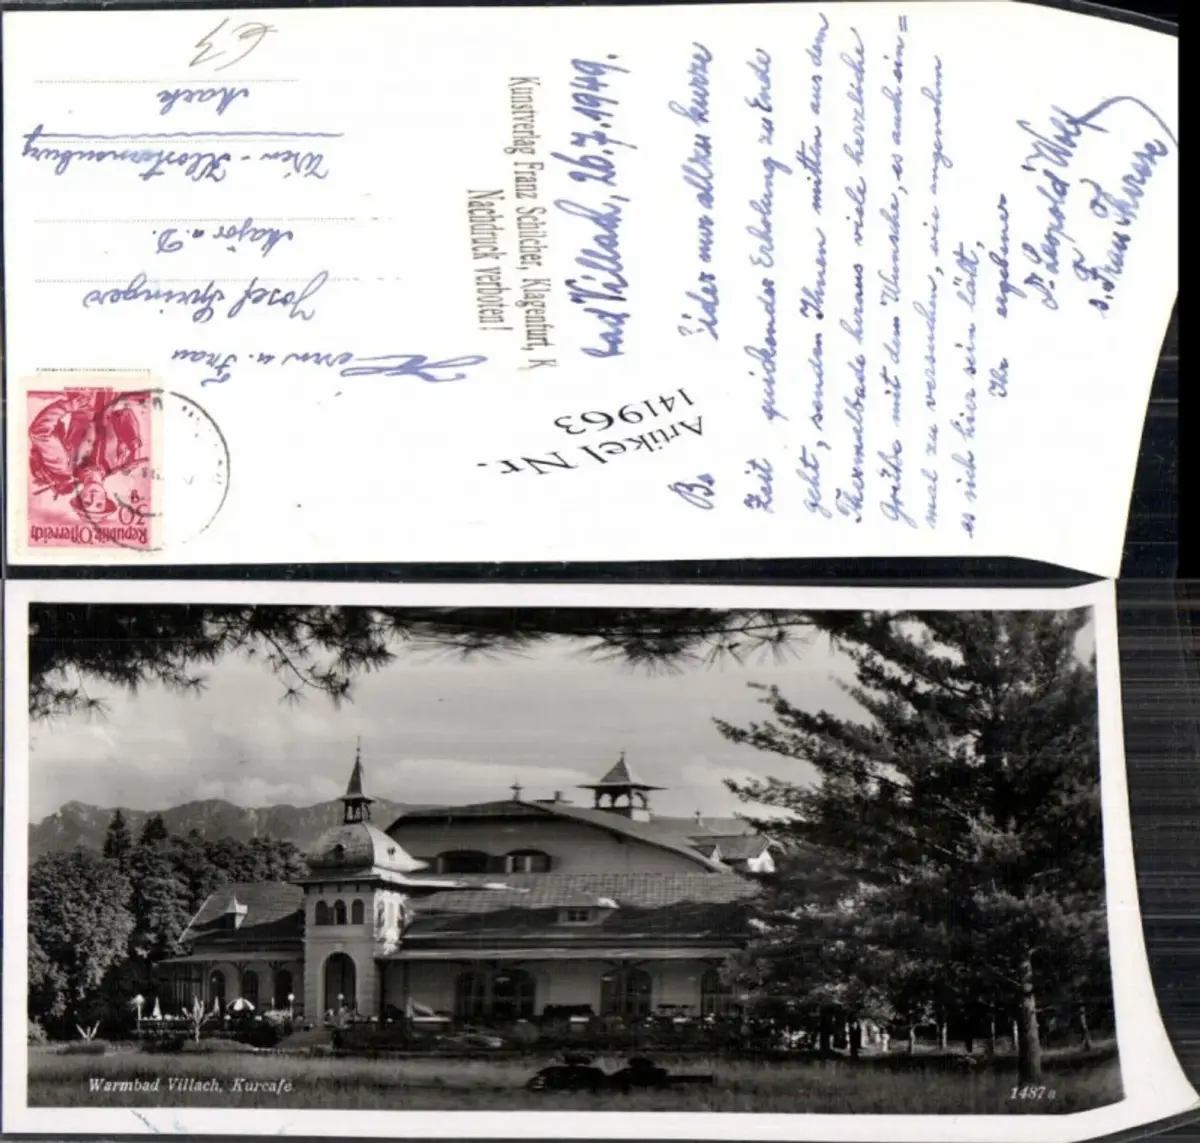 Bad Villach, 26.7.1949.
Leider nur allzu kurze
Zeit quickender Erholung zu Ende
geht, senden Ihnen mitten aus dem
Thermalbade heraus viele herzliche
Grüße mit dem Wunsche, es auch ein=
mal zu versuchen, wie angenehm
es sich hier sein läßt,
Ihr ergebener
Dr. Leopold Wolf
u. Frau
Kunstverlag Franz Schilcher, Klagenfurt, K
Nachdruck verboten!
Artikel Nr.
141963
Herrn u. Frau
Josef Springer
Major a. D.
Wien - Klosterneuburg
€3
Republik Österreich
30 g
Warmbad Villach, Kurcafe
1487a